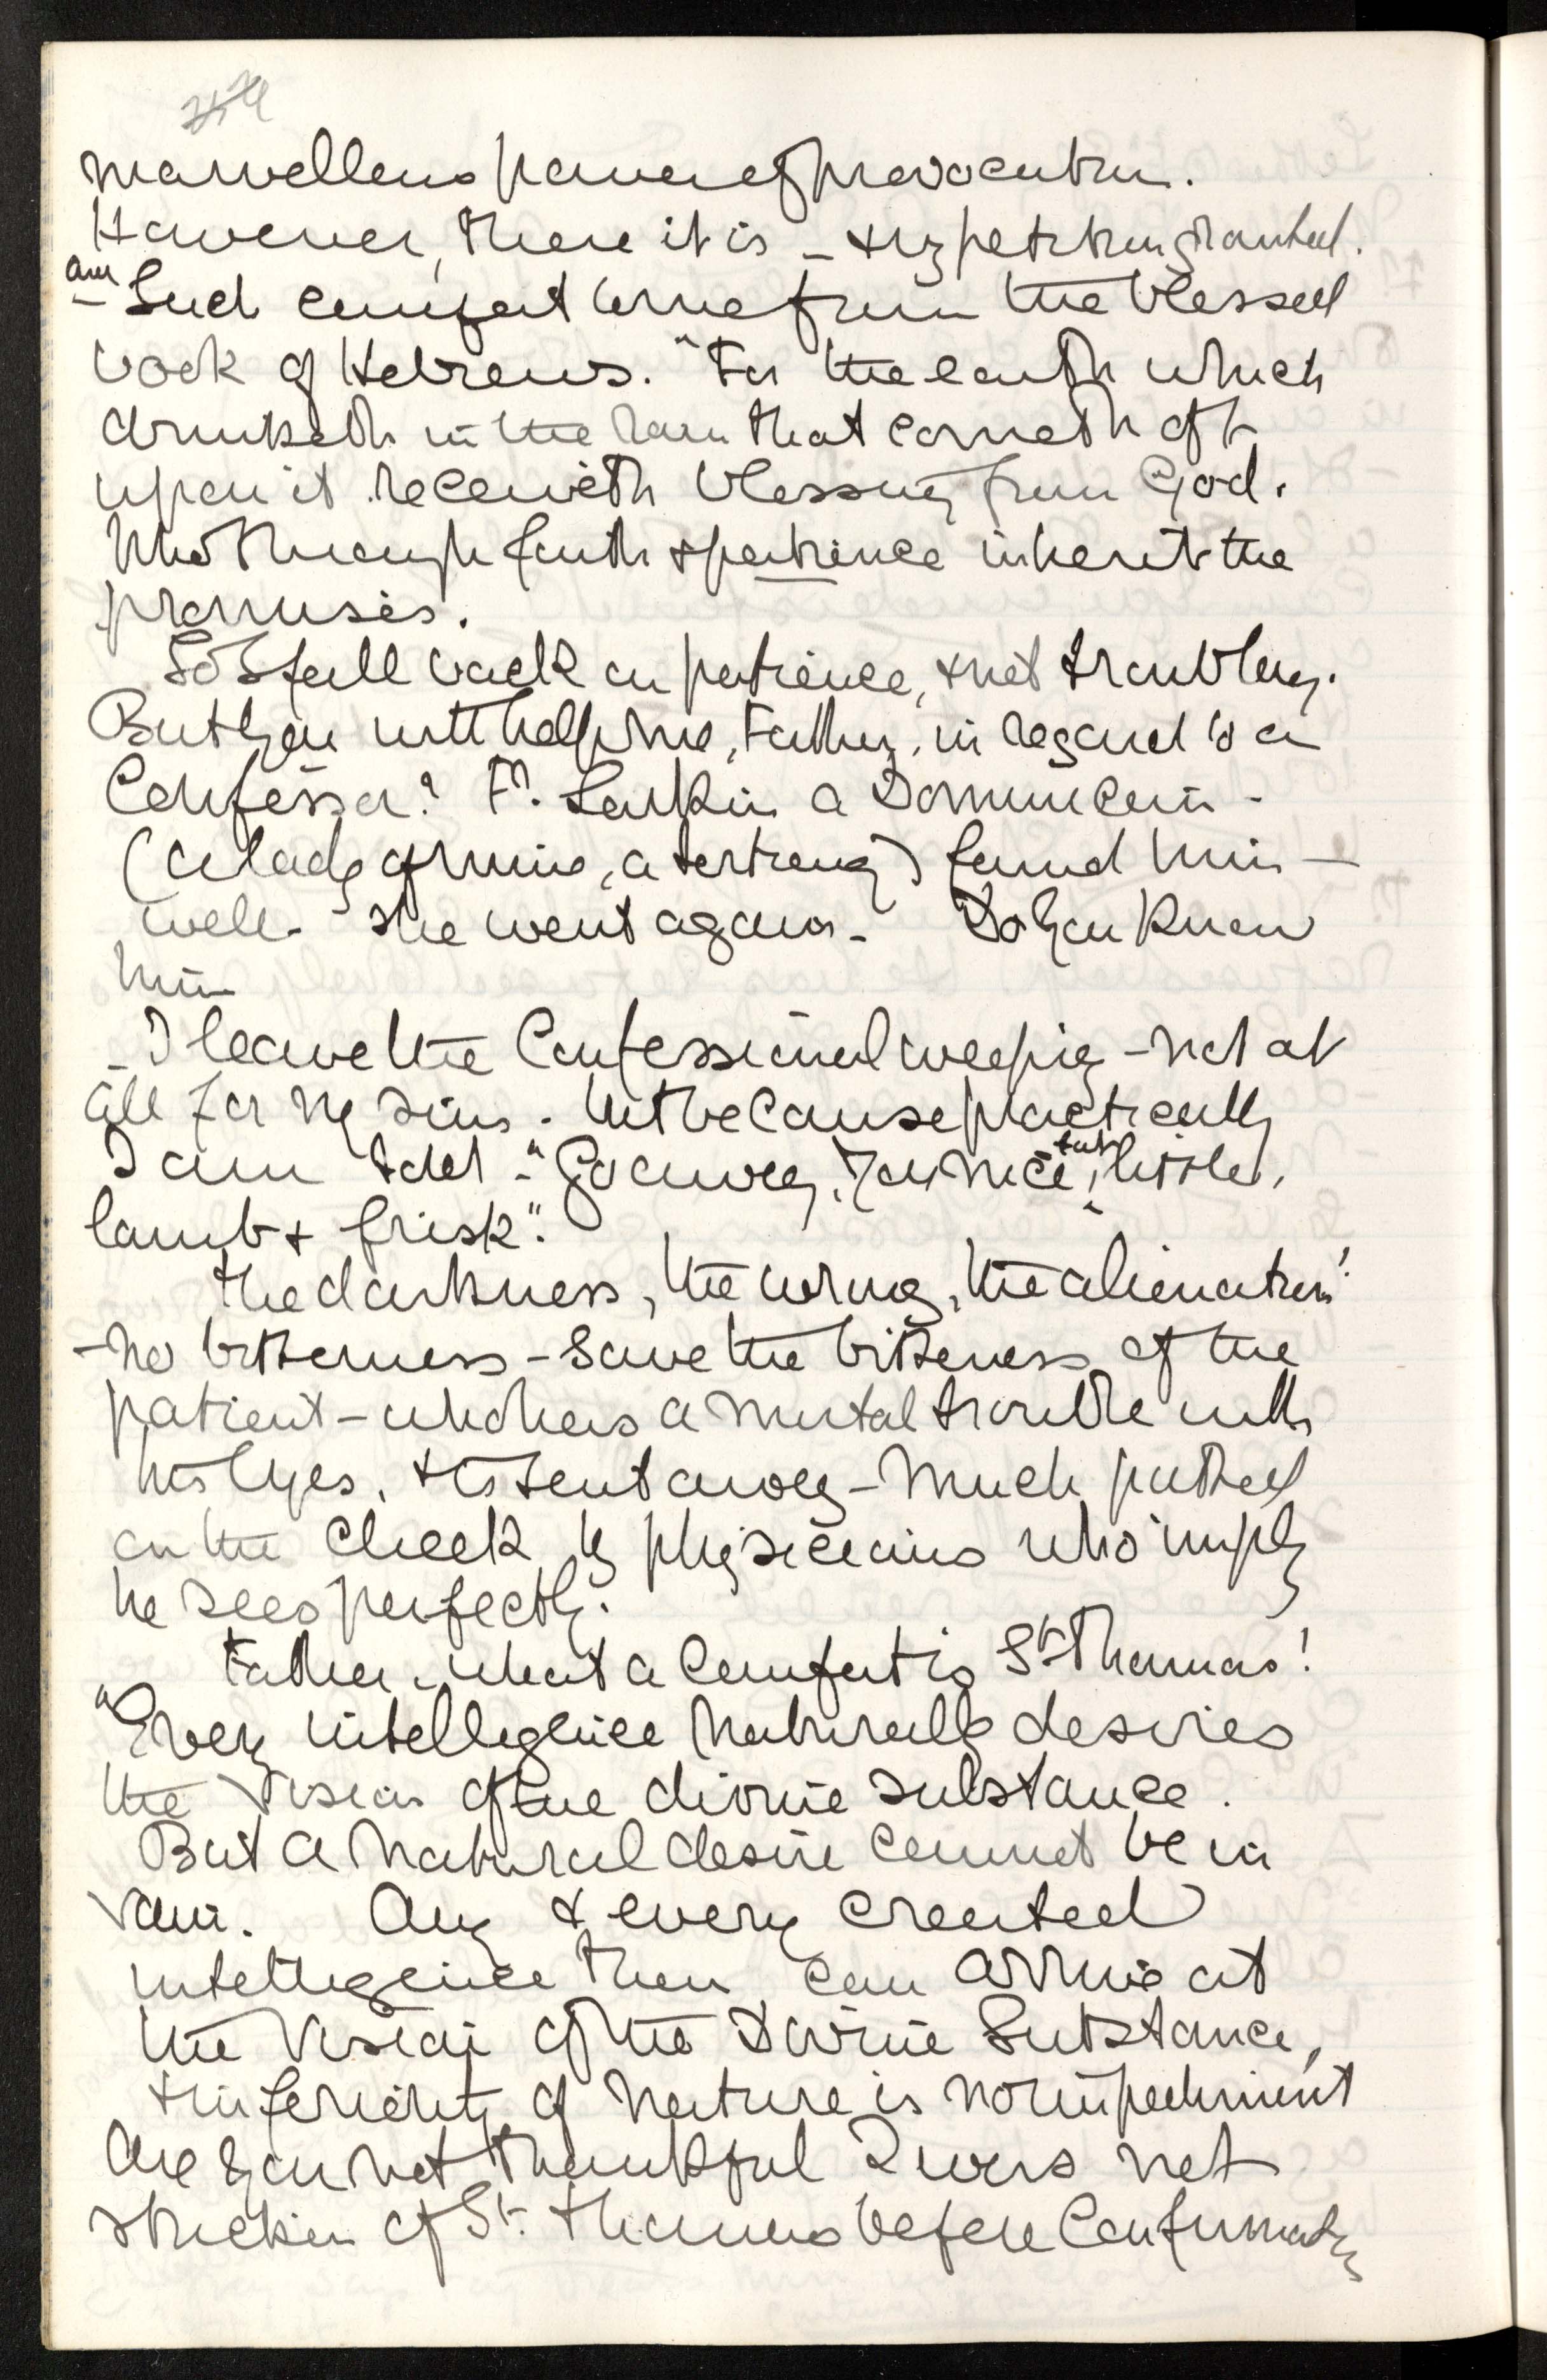 marvellous power of provocation.
However, there it is – & my petition granted.
– Such comfort comes from the blessed
book of Hebrews. "For the earth which
drinketh in the rain that cometh oft
upon it receiveth blessing from God.
Who through faith & patience inherit the
promises.
So I fall back on patience, & not troubling.
But you will help me, Father, in regard to a
Confessor? Fr. Larkin a Dominican –
(a lady of mine, a tertiary) found him –
well – she went again – Do you know
him –
– I leave the Confessional weeping – not at
all for my sins – but because practically
I am told – "Go away, you nice, fat, little,
lamb & frisk".
The darkness, the wrong, the alienation!
– no bitterness – save the bitterness of the
patient – who has a mortal trouble with
his eyes, & is sent away – much patted
on the cheek by physicians who imply
he sees perfectly.
Father – what a comfort is St. Thomas!
"Every intelligence naturally desires
the vision of the divine substance.
But a natural desire cannot be in
vain. Any & every created
intelligence then can arrive at
the Vision of the Divine Substance,
& inferiority of nature is no impediment
Are you not thankful I was not
stricken of St. Thomas before Confirmation